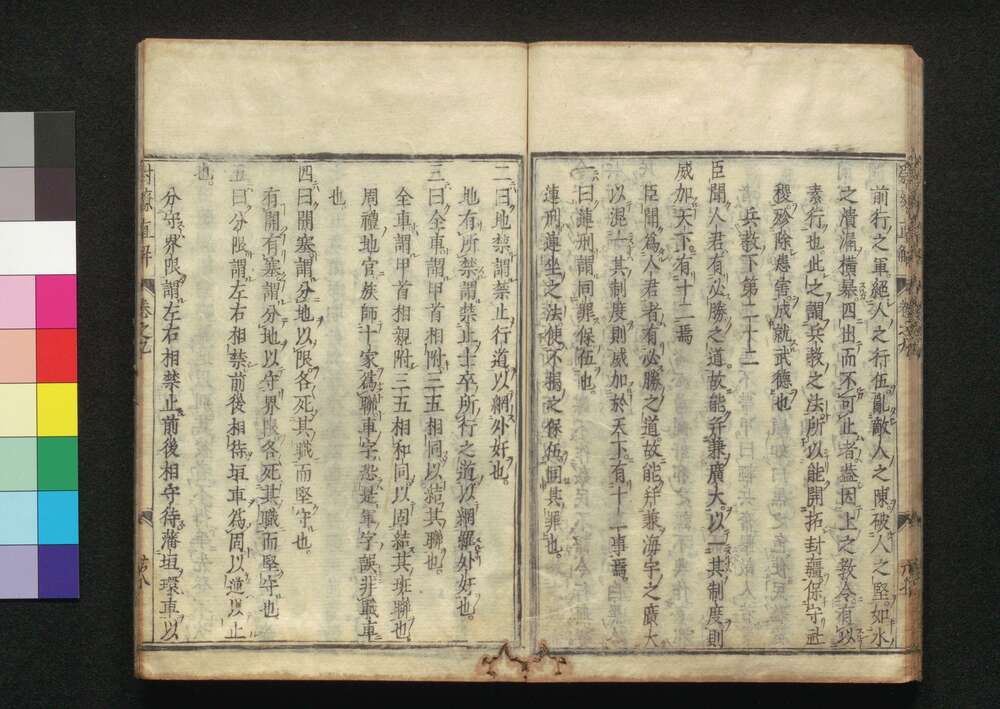 前行之軍絕人之行伍亂敵人之陳破人之堅如水
之潰漏橫暴四出而不可止者蓋因上之教令有以
素行也此之謂兵教之法所以能開拓封疆保守社
稷殄除患害成就武德也
兵教下第二十二
臣聞人君有必勝之道故能并兼廣大以一其制度則
威加天下有十二焉
臣聞爲人君者有必勝之道故能并兼海宇之廣大
以混一其制度則威加於天下有十二事焉
一曰連刑謂同罪保伍也
連刑連坐之法使不揭之保伍同其罪也
二曰地禁謂禁止行道以網外奸也
地有所禁謂禁止士卒所行之道以網羅外奸也
三曰全車謂甲首相附三五相同以結其聯也
全車謂甲首相親附三五相和同以固結其班聯也
周禮地官族師十家爲聯車字恐是軍字誤非戰車
也
四曰開塞謂分地以限各死其職而堅守也
有開有塞謂分地以守界限各死其職而堅守也
五曰分限謂左右相禁前後相待垣車爲固以逆以止
也
分守界限謂左右相禁止前後相守待藩垣環車以
卷之九